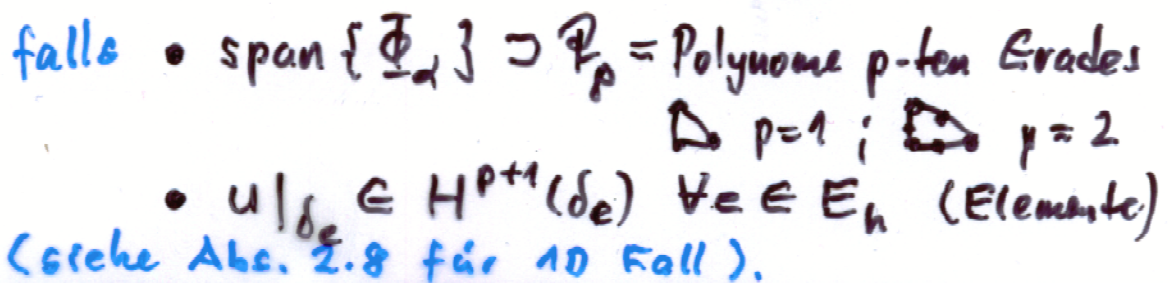 falls • span {Φ_α} ⊃ P_p = Polynome p-ten Grades
p=1 ; p=2
• u|_δe ∈ H^{p+1}(δ_e) ∀e ∈ E_h (Elemente)
(siehe Abs. 2.8 für 1D Fall).